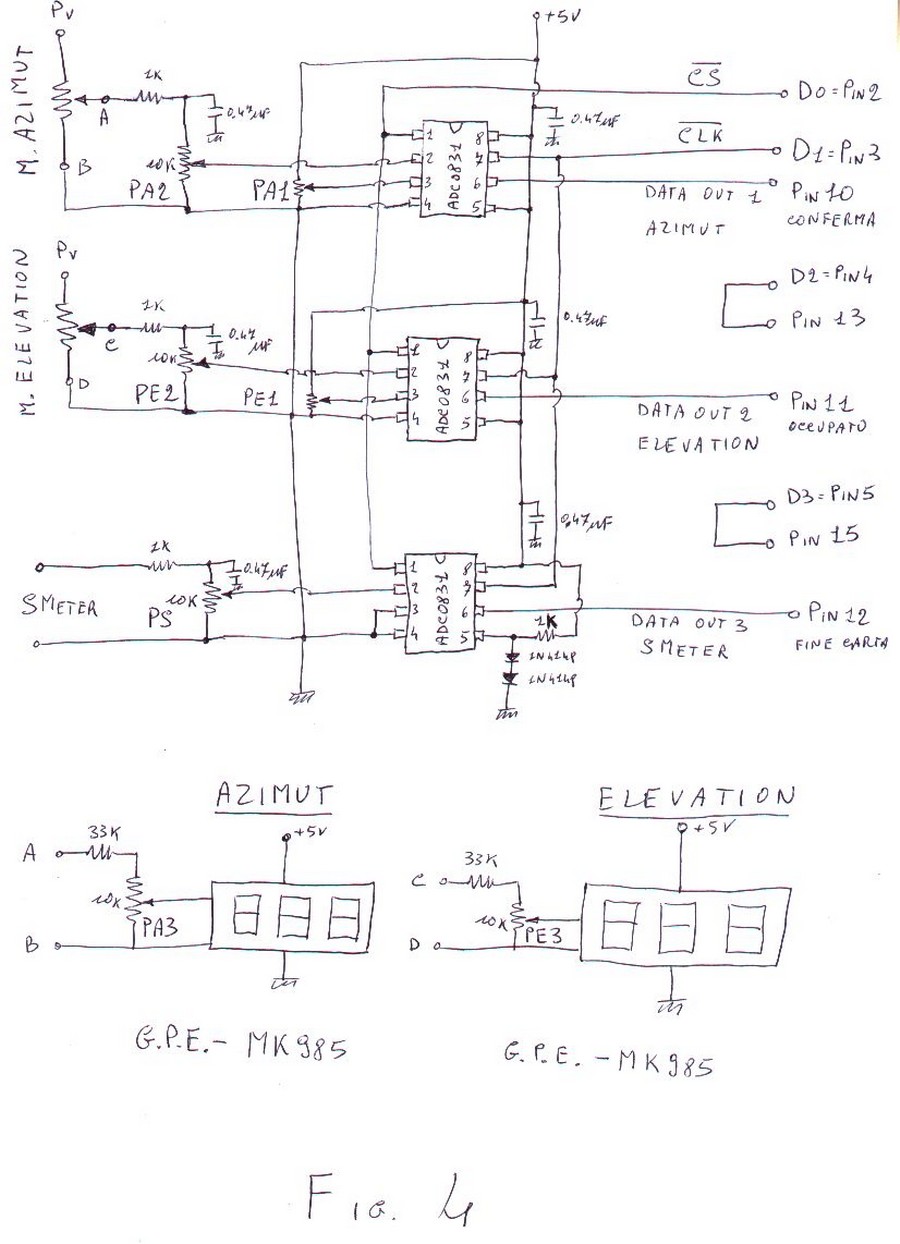 Pv
+5V
M. AZIMUT
1K
A
0.47µF
B
10K
PA2
PA1
1 2 3 4
ADC0831
8 7 6 5
0.47µF
CS
D0 = PIN2
CLK
D1 = PIN3
DATA OUT 1
AZIMUT
PIN 10
CONFERMA
Pv
M. ELEVATION
1K
C
0.47
µF
D
10K
PE2
PE1
1 2 3 4
ADC0831
8 7 6 5
0.47µF
D2 = PIN4
PIN 13
DATA OUT 2
ELEVATION
PIN 11
OCCUPATO
D3 = PIN5
PIN 15
0.47µF
1K
0.47µF
SMETER
10K
PS
1 2 3 4
ADC0831
8 7 6 5
1K
1N4148
1N4148
DATA OUT 3
SMETER
PIN 12
FINE CARTA
AZIMUT
ELEVATION
33K
+5V
A
10K
PA3
B
33K
+5V
C
10K
PE3
D
G.P.E. - MK985
G.P.E. - MK985
FIG. 4